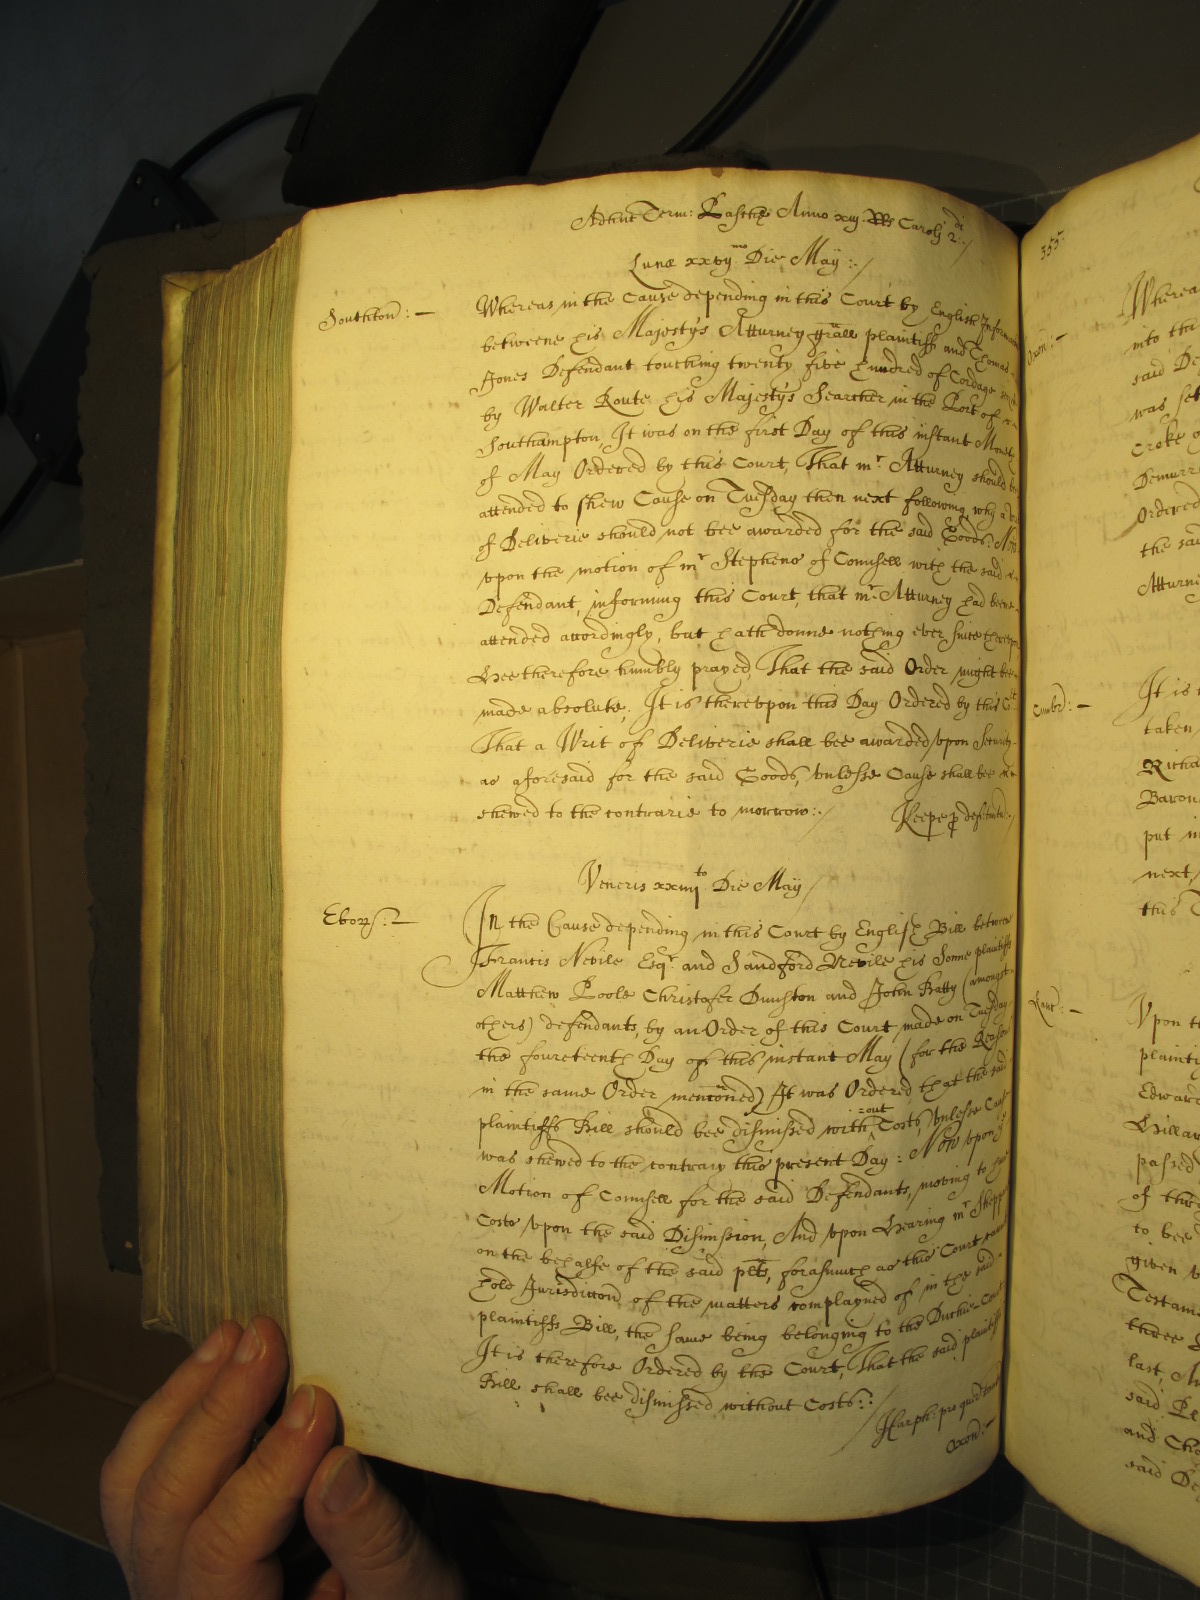 Adhuc Term: Pasche Anno xiij RRs Caroli 2di:/
Lune xxvijmo Die May:/
Southton: —
Whereas in the Cause depending in this Court by English
betweene his Majestys Atturney grall plaintiff and Thomas
Jones Defendant touching twenty five hundred of Cordage
by Walter Route his Majestys Searcher in the Port of
Southampton, It was on the first Day of this instant Moneth
of May Ordered by this Court, That mr Atturney should be
attended to shew Cause on Tuesday then next following, why a
of Deliverie should not bee awarded for the said Goods: Now
upon the motion of mr Stephens of Councell with the said
Defendant, informing this Court, that mr Atturney had beene
attended accordingly, but hath donne nothing ever since
Hee therefore humbly prayed, That the said Order might bee
made absolute; It is thereupon this Day Ordered by this Cort
That a Writ of Deliverie shall bee awarded upon Security
as aforesaid for the said Goods, unlesse Cause shall bee
shewed to the contrarie to morrow:/
Keepe p def:
Veneris xxiiijto Die May/
Ebor: —
In the Cause depending in this Court by English Bill betweene
Francis Nevile Esqr and Sandford Nevile his Sonne plaintiffs
Matthew Poole Christofer Dunston and John Batty (amongst
others) defendants, by an Order of this Court made on Tuesday
the fourteenth Day of this instant May (for the Reason
in the same Order menconed) It was Ordered that the said
plaintiffs Bill should bee dismissed with =out Costs, unlesse Cause
was shewed to the contrary this present Day: Now upon ye
Motion of Councell for the said Defendants, moving to have
Costs upon the said Dismission, And upon Hearing mr
on the behalfe of the said plts, forasmuch as this Court
hold Jurisdiccon of the matters complayned of in the said
plaintiffs Bill, the same being belonging to the Duchie Court
It is therefore Ordered by the Court, That the said plaintiffs
Bill shall bee dismissed without Costs:/
Harph: pro
355
Oxon: —
Whereas
into
said
was
Croke
Demurr
Ordered
the
Atturney
Cumbr: —
It is
taken
Richa
Baron
put
next
this
Kanc: —
Upon
plainti
Edward
Hillar
passed
of
to bee
given
Testam
three
last,
said
and
said